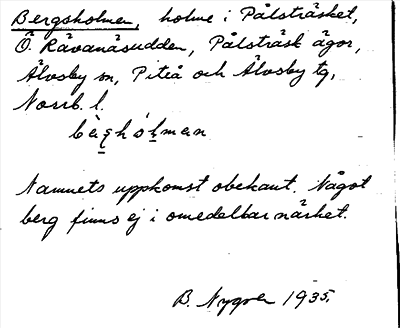 Bergsholmen, holme i Pålsträsket,
Ö. Rävanäsudden, Pålsträsk ägor,
Älvsby sn, Piteå och Älvsby tg,
Norrb. l.
bèrghólman
Namnets uppkomst obekant. Något
berg finns ej i omedelbar närhet.
B. Nygren 1935.